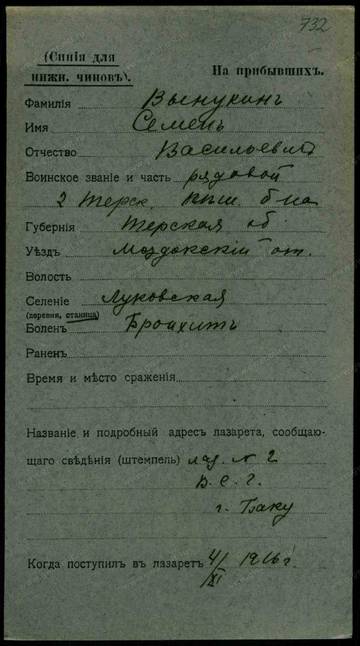 732
(Синія для
нижн. чиновъ).
На прибывшихъ.
Фамилія Вынукинъ
Имя Семенъ
Отчество Васильевичъ
Воинское званіе и часть рядовой
2 Терск. пш. б-на
Губернія Терская об
Уѣздъ Моздокскій от.
Волость
Селеніе Луковская
(деревня, станица)
Боленъ Бронхитъ
Раненъ
Время и мѣсто сраженія
Названіе и подробный адресъ лазарета, сообщаю-
щаго свѣдѣнія (штемпель) лаз. № 2
В. С. Г.
г. Баку
Когда поступилъ въ лазаретъ 4/XI 1916 г.